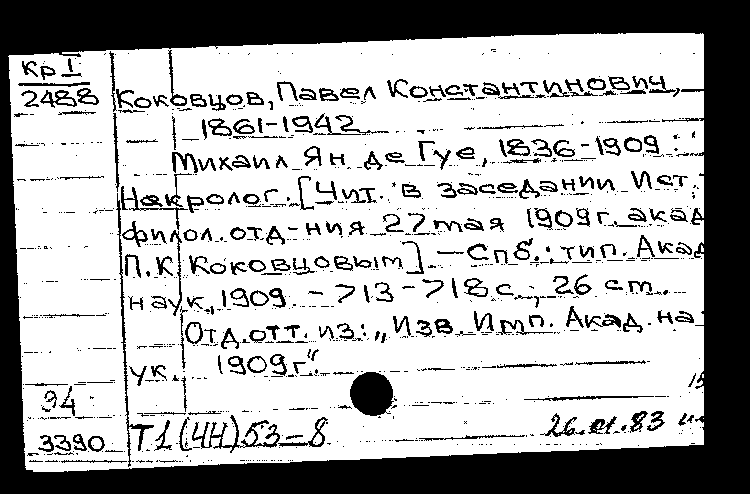 Кр I
2488
Коковцов, Павел Константинович,
1861-1942
Михаил Ян де Гуе, 1836-1909 :
Некролог. [Чит. в заседании Ист.
филол. отд-ния 27 мая 1909 г. акад
П.К. Коковцовым]. — Спб.: тип. Акад
наук, 1909. - 713-718 с.; 26 см.
Отд. отт. из: „Изв. Имп. Акад. на-
ук. 1909 г“.
94
3390
Т1(4Н)53-8
26.01.83